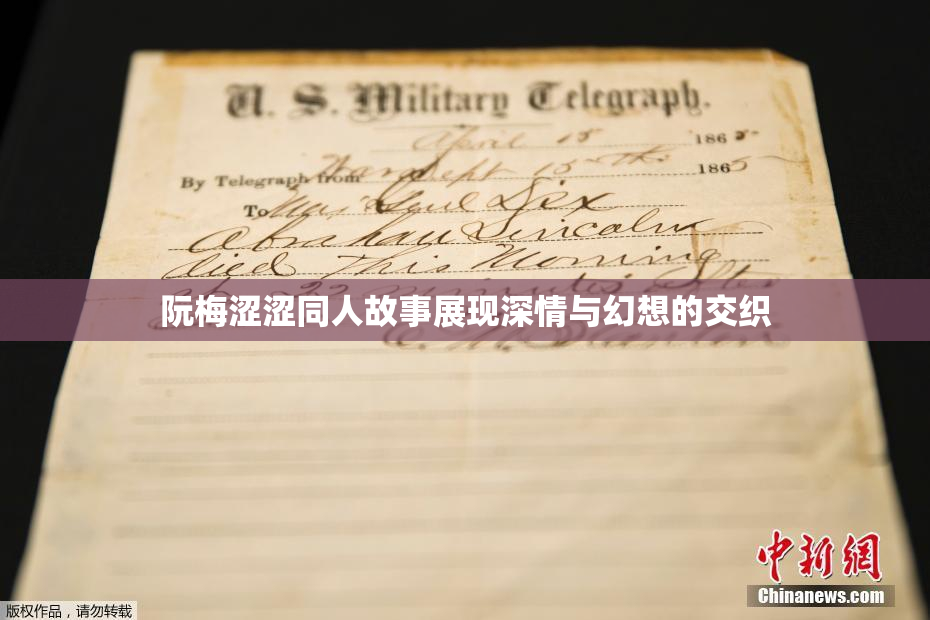 U. S. Military Telegraph.
April 15 1865
By Telegraph from War Dept 15th 1865
To Maj Genl Dix
Abraham Lincoln
died This Morning
at 22 minutes after
阮梅涩涩同人故事展现深情与幻想的交织
E. M. Stanton
中新网
Chinanews.com
版权作品,请勿转载